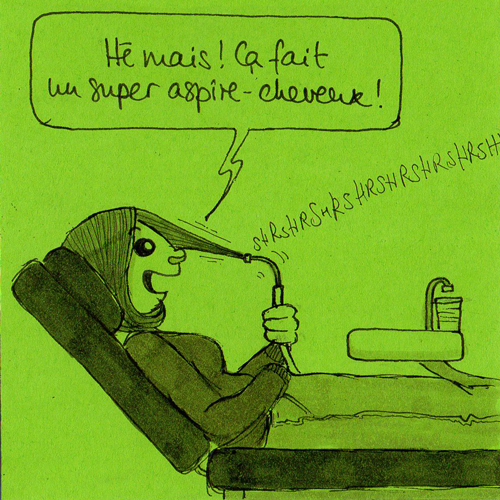 Hé mais ! Ça fait
un super aspire-cheveux !
SHRSHRSHRSHRSHRSHRSHRSHRSH